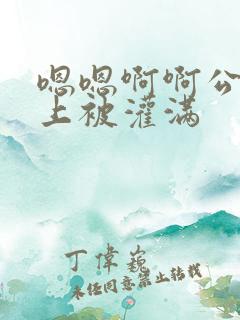 嗯嗯啊啊公
上被灌满
丁偉巍
未经同意禁止转载